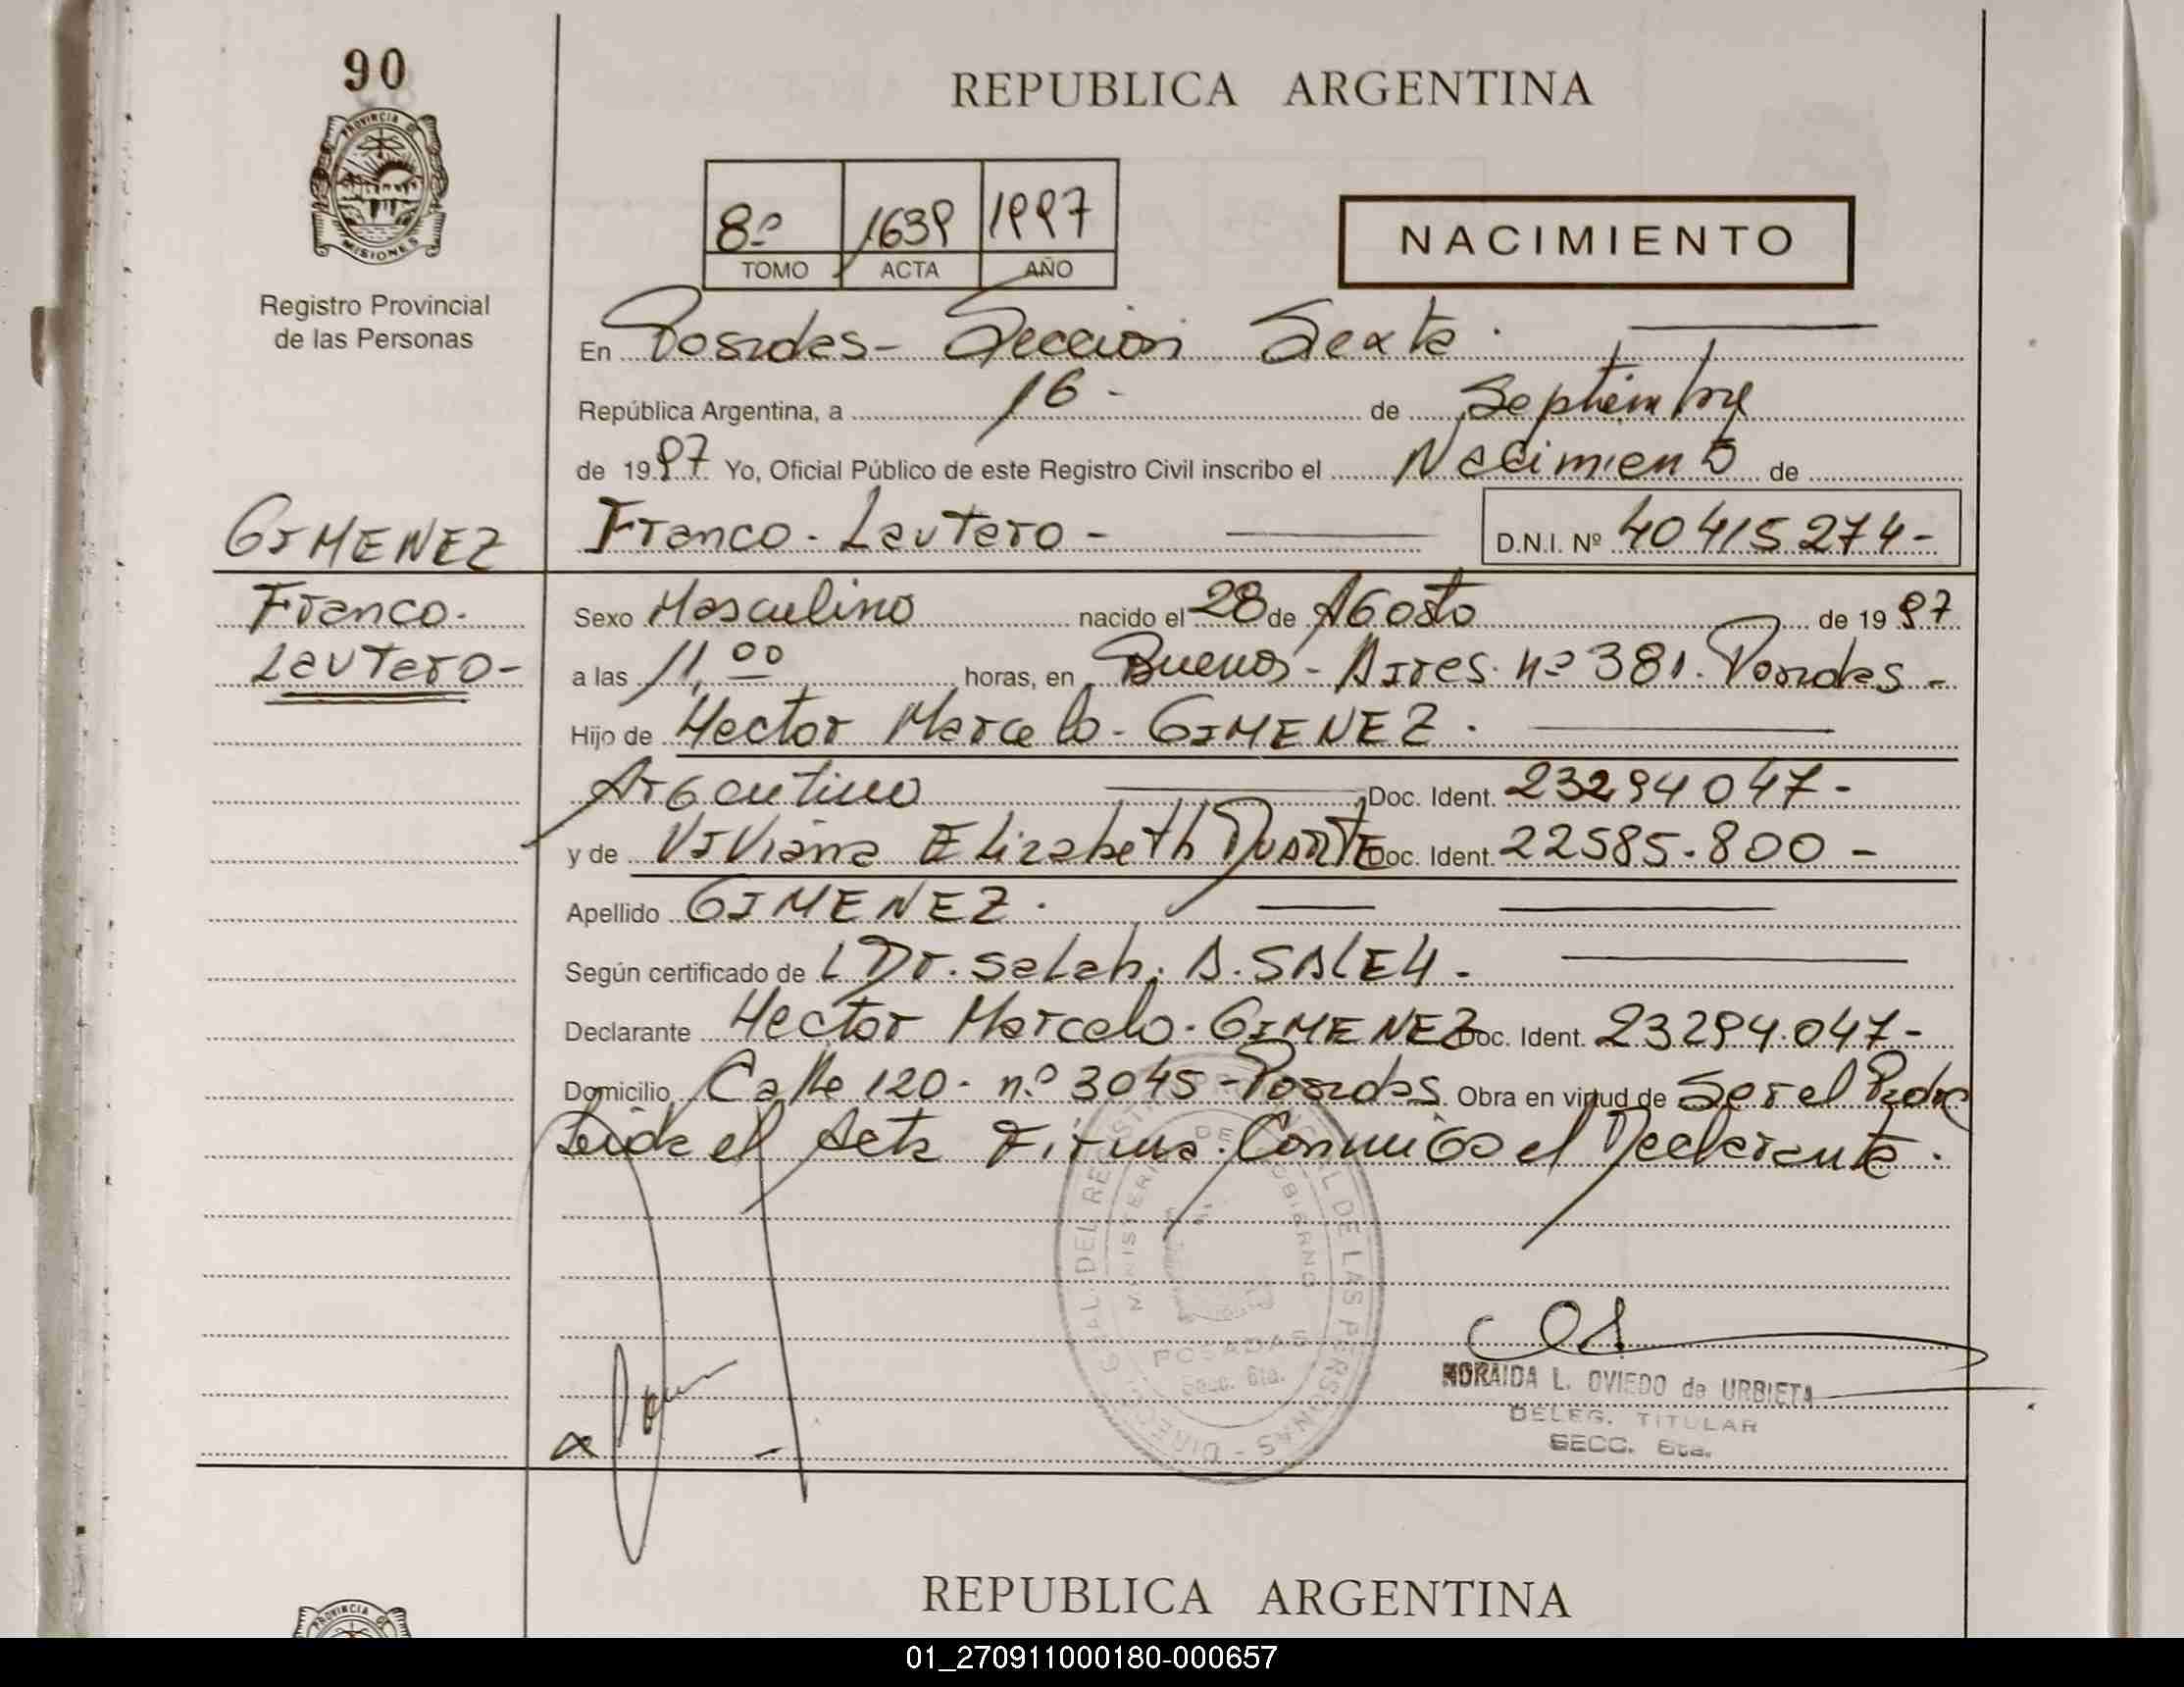 90
REPUBLICA ARGENTINA
PROVINCIA DE
MISIONES
Registro Provincial
de las Personas
8º 1639 1997
TOMO ACTA AÑO
NACIMIENTO
En Posadas - Seccion Sexta.
República Argentina, a 16 - de Septiembre
de 1997 Yo, Oficial Público de este Registro Civil inscribo el Nacimiento de
GIMENEZ
Franco - Lautaro -
D.N.I. Nº 40415274-
Franco.
Lautaro-
Sexo Masculino nacido el 28 de AGosto de 1997
a las 11,00 horas, en Buenos - Aires nº 381. Posadas -
Hijo de Hector Marcelo - GIMENEZ.
Argentino Doc. Ident. 23294047-
y de Viviana Elizabeth DUARTE Doc. Ident. 22585.800 -
Apellido GIMENEZ.
Según certificado de Dr. Salah. A. SALEH.
Declarante Hector Marcelo - GIMENEZ Doc. Ident. 23294.047-
Domicilio Calle 120 - nº 3045 - Posadas. Obra en virtud de Ser el Padre
Leida el Acta Firma Conmigo el Declarante.
DIRECC. GRAL. DEL REGISTRO PROVINCIAL DE LAS PERSONAS
MINISTERIO DE GOBIERNO
POSADAS
Secc. 6ta.
NORAIDA L. OVIEDO de URBIETA
DELEG. TITULAR
SECC. 6ta.
REPUBLICA ARGENTINA
PROVINCIA DE
01_270911000180-000657